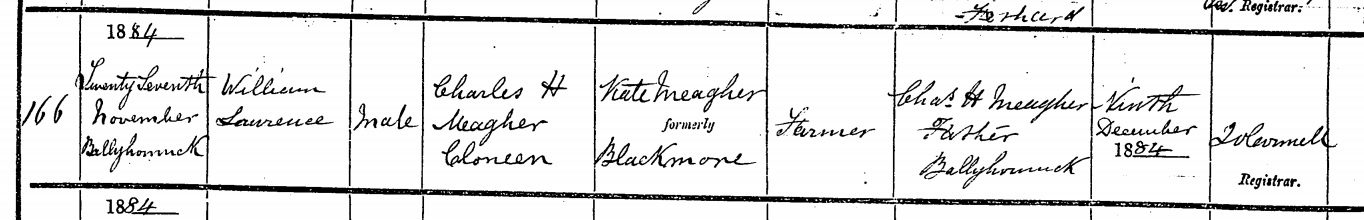 Registrar.
1884
166
Twenty Seventh
November
Ballyhomuck
William
Lawrence
Male
Charles H
Meagher
Cloneen
Kate Meagher
formerly
Blackmore
Farmer
Chas. H Meagher
Father
Ballyhomuck
Ninth
December
1884
Registrar.
1884